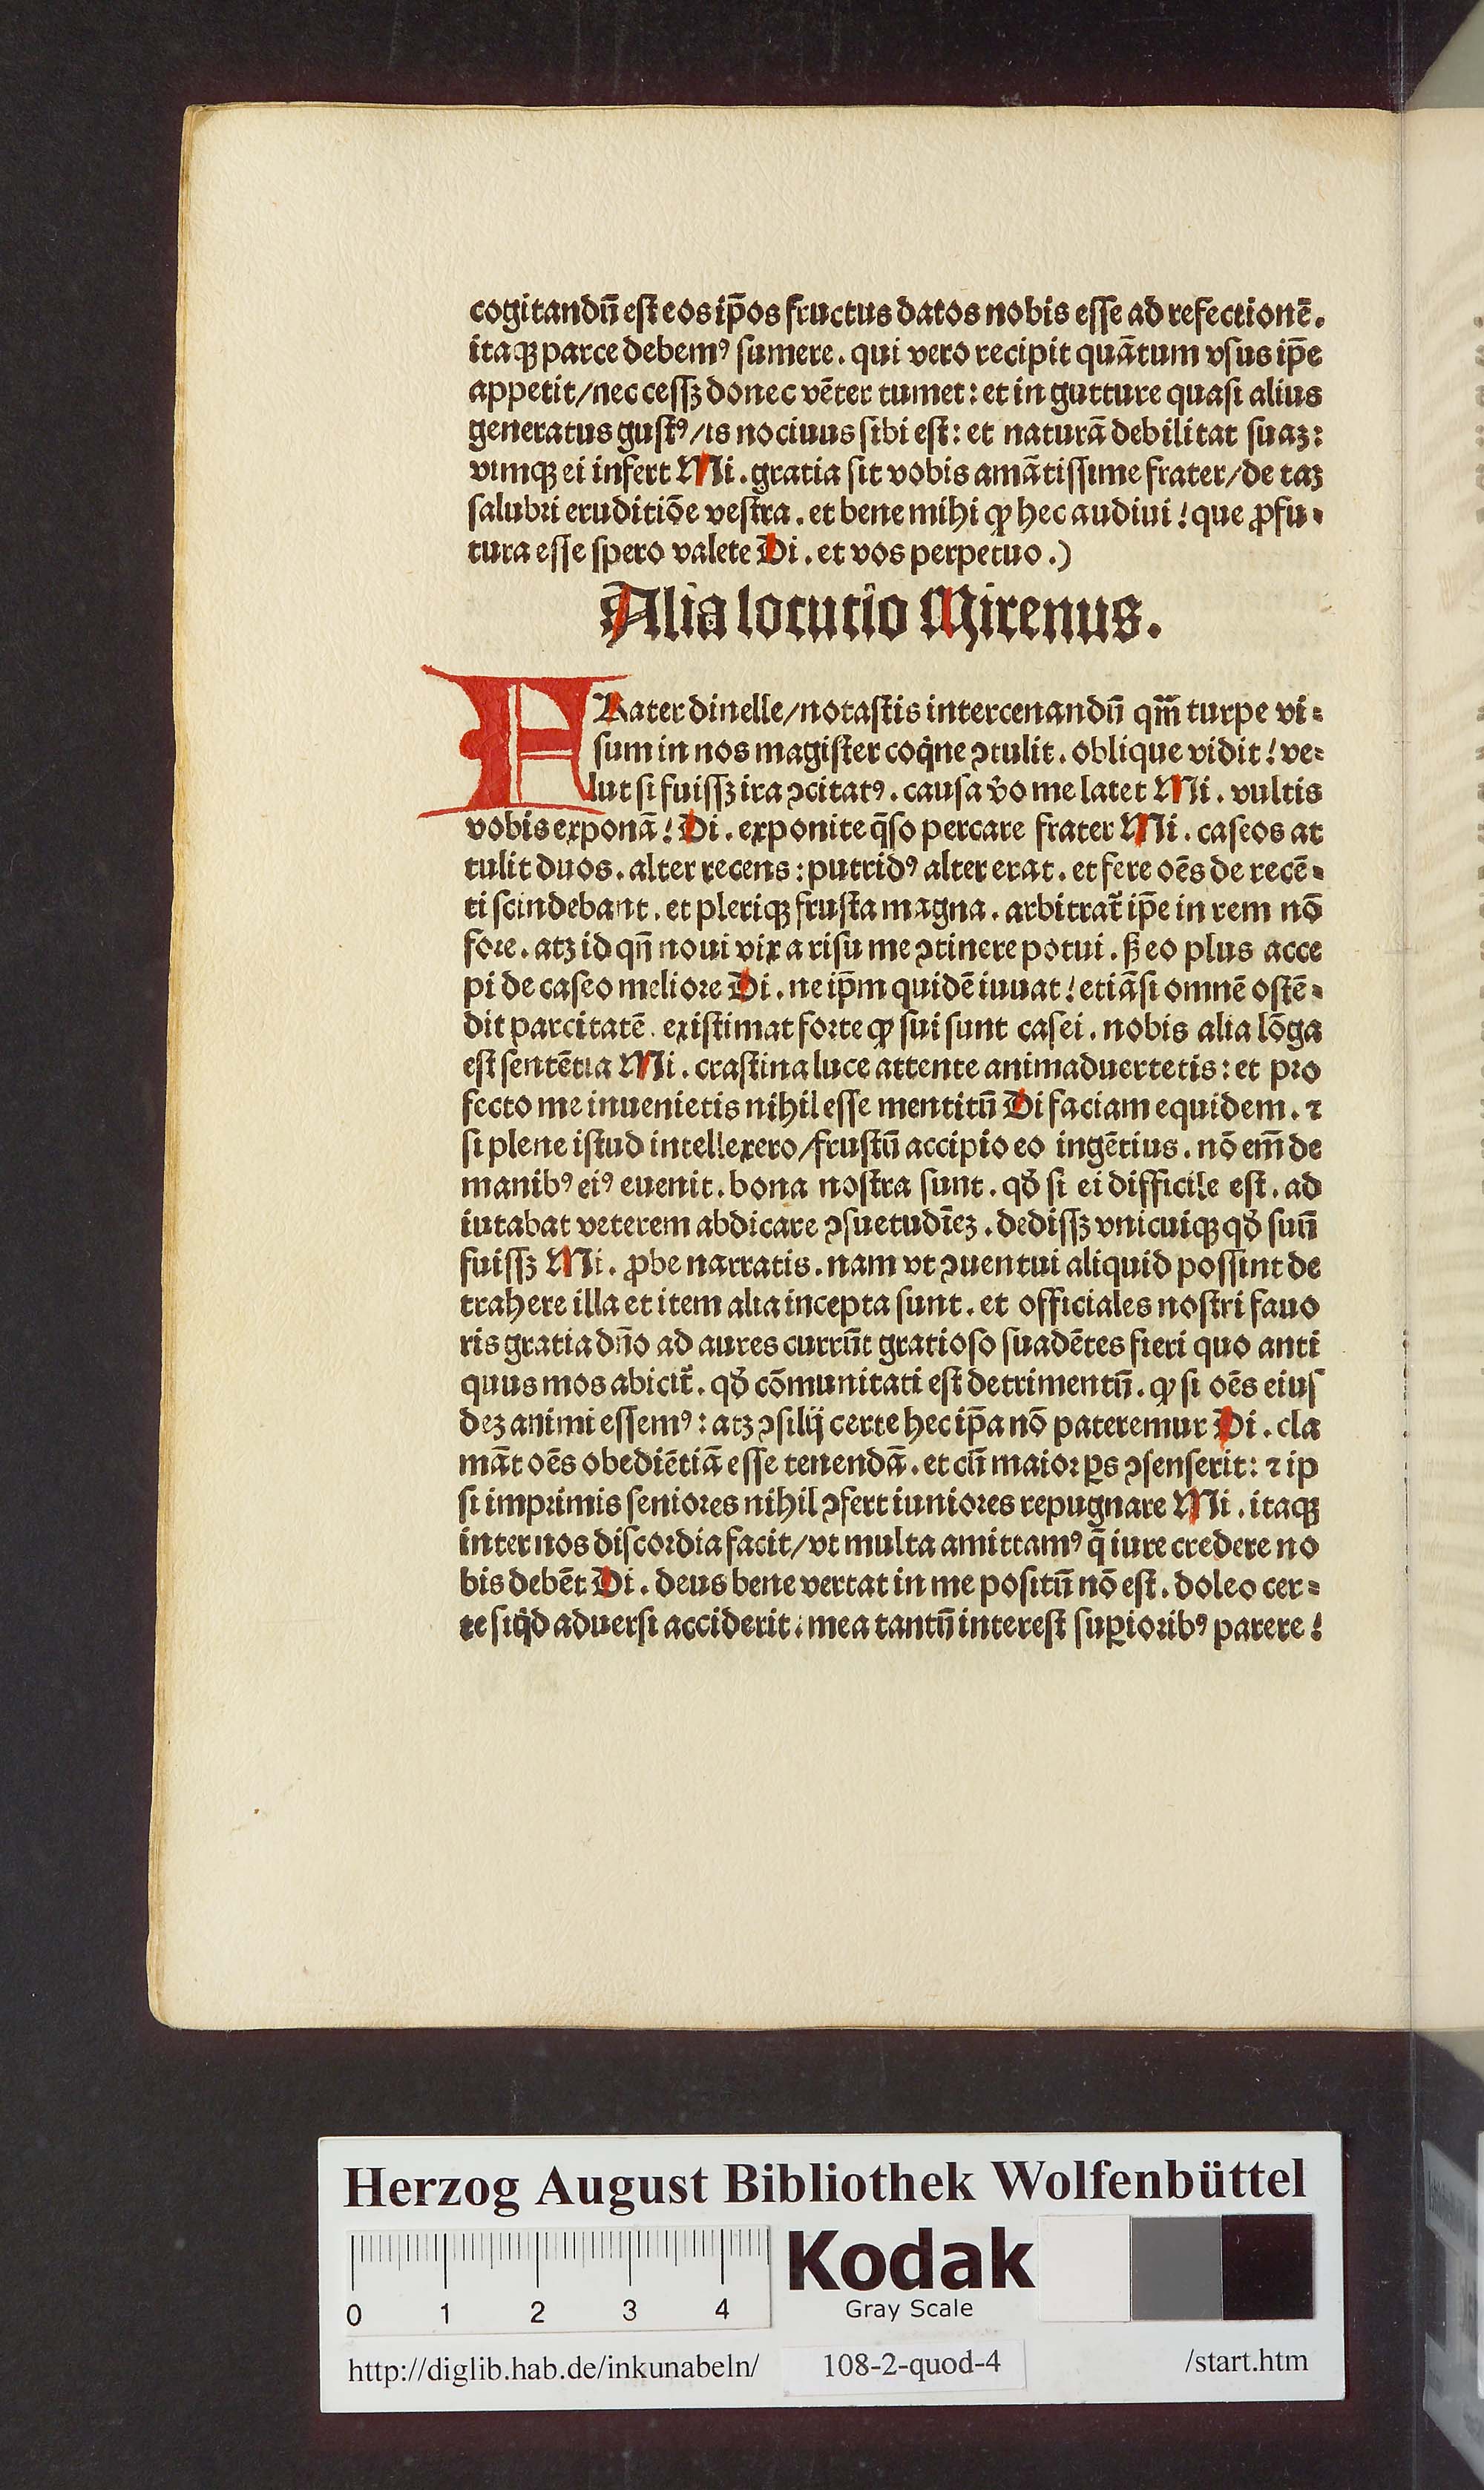 cogitandū est eos ip̄os fructus datos nobis esse ad refectionē.
itaqꝫ parce debemꝰ sumere. qui vero recipit quātum vsus ip̄e
appetit/nec cessꝫ donec vēter tumet: et in gutture quasi alius
generatus gustꝰ/is nociuus sibi est: et naturā debilitat suaꝫ:
vimqꝫ ei infert Mi. gratia sit vobis amātissime frater/de taꝫ
salubri eruditiōe vestra. et bene mihi ꝙ hec audiui! que ꝓfu⸗
tura esse spero valete Di. et vos perpetuo.)
Alia locutio Mirenus.
FRater dinelle/notastis intercenandū qm̄ turpe vi⸗
sum in nos magister coq̇ne ꝯtulit. oblique vidit! ve⸗
lut si fuissꝫ ira ꝯcitatꝰ. causa v̇o me latet Mi. vultis
vobis exponā! Di. exponite q̄so percare frater Mi. caseos at
tulit duos. alter recens: putridꝰ alter erat. et fere oēs de recē⸗
ti scindebant. et pleriqꝫ frusta magna. arbitrat᷑ ip̄e in rem nō
fore. atꝫ id qn̄ noui vix a risu me ꝯtinere potui. ꞩ eo plus acce
pi de caseo meliore Di. ne ip̄m quidē iuuat! etiāsi omnē ostē⸗
dit parcitatē. existimat forte ꝙ sui sunt casei. nobis alia lōga
est sentētia Mi. crastina luce attente animaduertetis: et pro
fecto me inuenietis nihil esse mentitū Di faciam equidem. ⁊
si plene istud intellexero/frustū accipio eo ingētius. nō em̄ de
manibꝰ eiꝰ euenit. bona nostra sunt. qď si ei difficile est. ad
iutabat veterem abdicare ꝯsuetudīeꝫ. dedissꝫ vnicuiqꝫ qď suū
fuissꝫ Mi. ꝓbe narratis. nam vt ꝯuentui aliquid possint de
trahere illa et item alia incepta sunt. et officiales nostri fauo
ris gratia dn̄o ad aures currūt gratioso suadētes fieri quo anti
quus mos abicit᷑. qď cōmunitati est detrimentū. ꝙ si oēs eius
deꝫ animi essemꝰ: atꝫ ꝯsilij certe hec ip̄a nō pateremur Di. cla
māt oēs obediētiā esse tenendā. et cū maior ꝑs ꝯsenserit: ⁊ ip
si imprimis seniores nihil ꝯfert iuniores repugnare Mi. itaqꝫ
inter nos discordia facit/vt multa amittamꝰ q̄ iure credere no
bis debēt Di. deus bene vertat in me positū nō est. doleo cer⸗
te siq̇d aduersi acciderit: mea tantū interest suꝑioribꝰ parere!
Herzog August Bibliothek Wolfenbüttel
Kodak
Gray Scale
0 1 2 3 4
http://diglib.hab.de/inkunabeln/ 108-2-quod-4 /start.htm